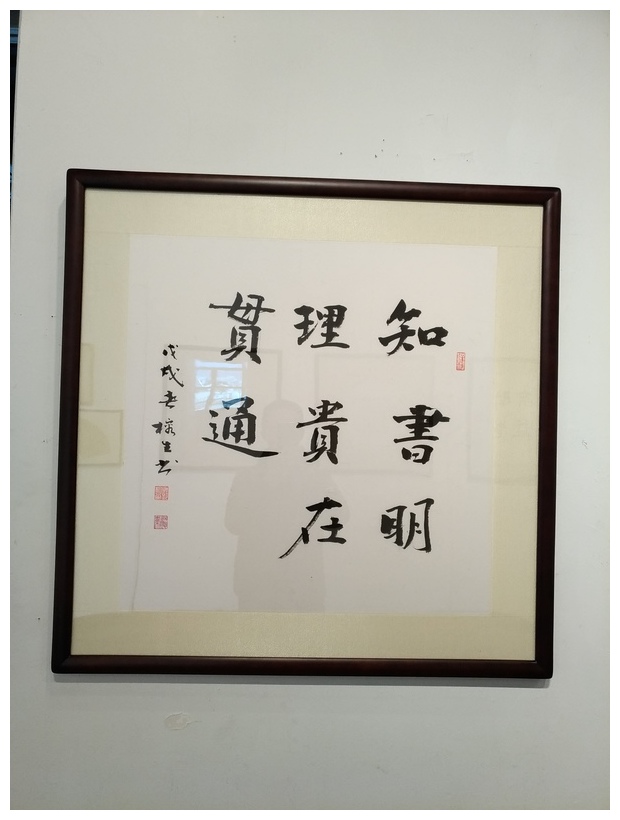 知書明
理貴在
貫通
戊戌 生书